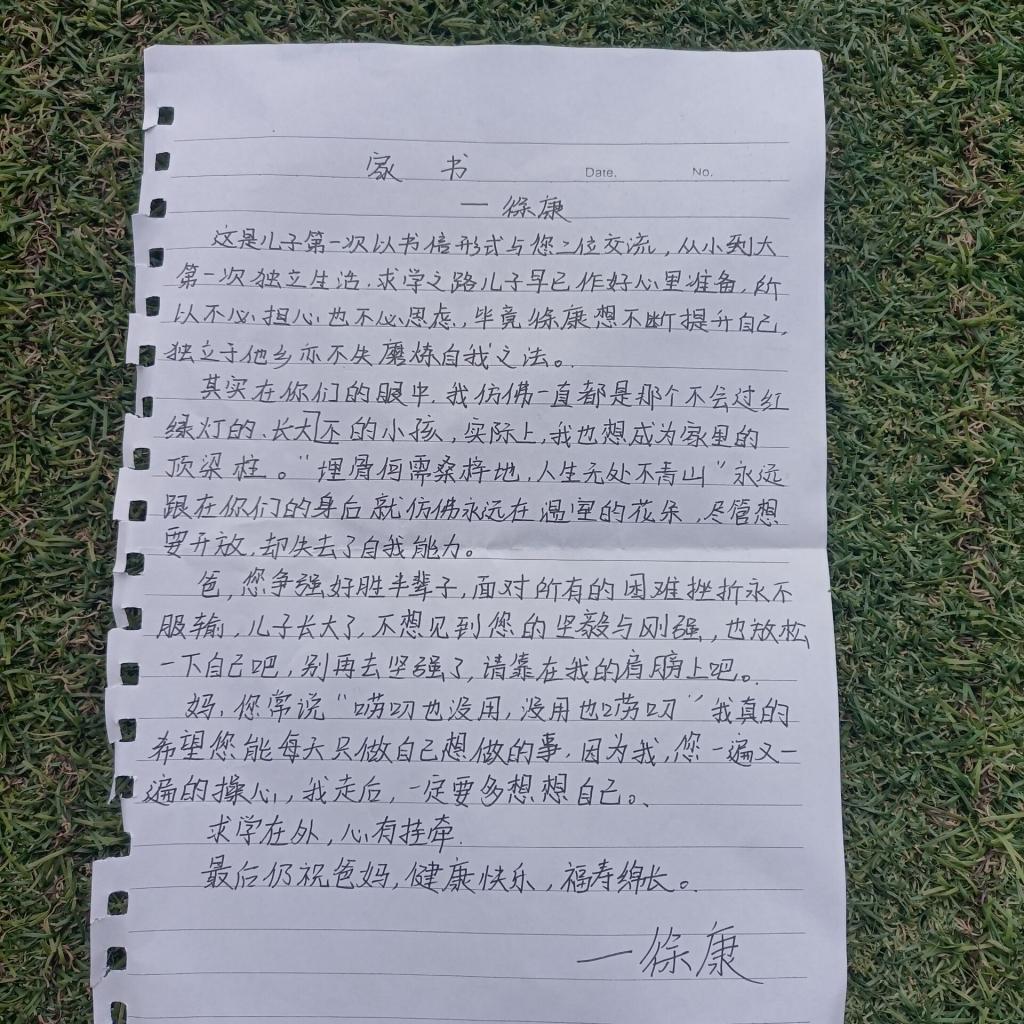 家 书
Date. No.
一徐康
这是儿子第一次以书信形式与您二位交流，从小到大
第一次独立生活，求学之路儿子早已作好心里准备，所
以不必担心也不必思虑，毕竟徐康想不断提升自己，
独立于他乡亦不失磨炼自我之法。
其实在你们的眼中，我仿佛一直都是那个不会过红
绿灯的、长大不的小孩，实际上，我也想成为家里的
顶梁柱。“埋骨何需桑梓地，人生无处不青山”永远
跟在你们的身后就仿佛永远在温室的花朵，尽管想
要开放，却失去了自我能力。
爸，您争强好胜半辈子，面对所有的困难挫折永不
服输，儿子长大了，不想见到您的坚毅与刚强，也放松
一下自己吧，别再去坚强了，请靠在我的肩膀上吧。
妈，您常说“唠叨也没用，没用也唠叨”我真的
希望您能每天只做自己想做的事，因为我，您一遍又一
遍的操心，我走后，一定要多想想自己。
求学在外，心有挂牵.
最后仍祝爸妈，健康快乐，福寿绵长。
一徐康